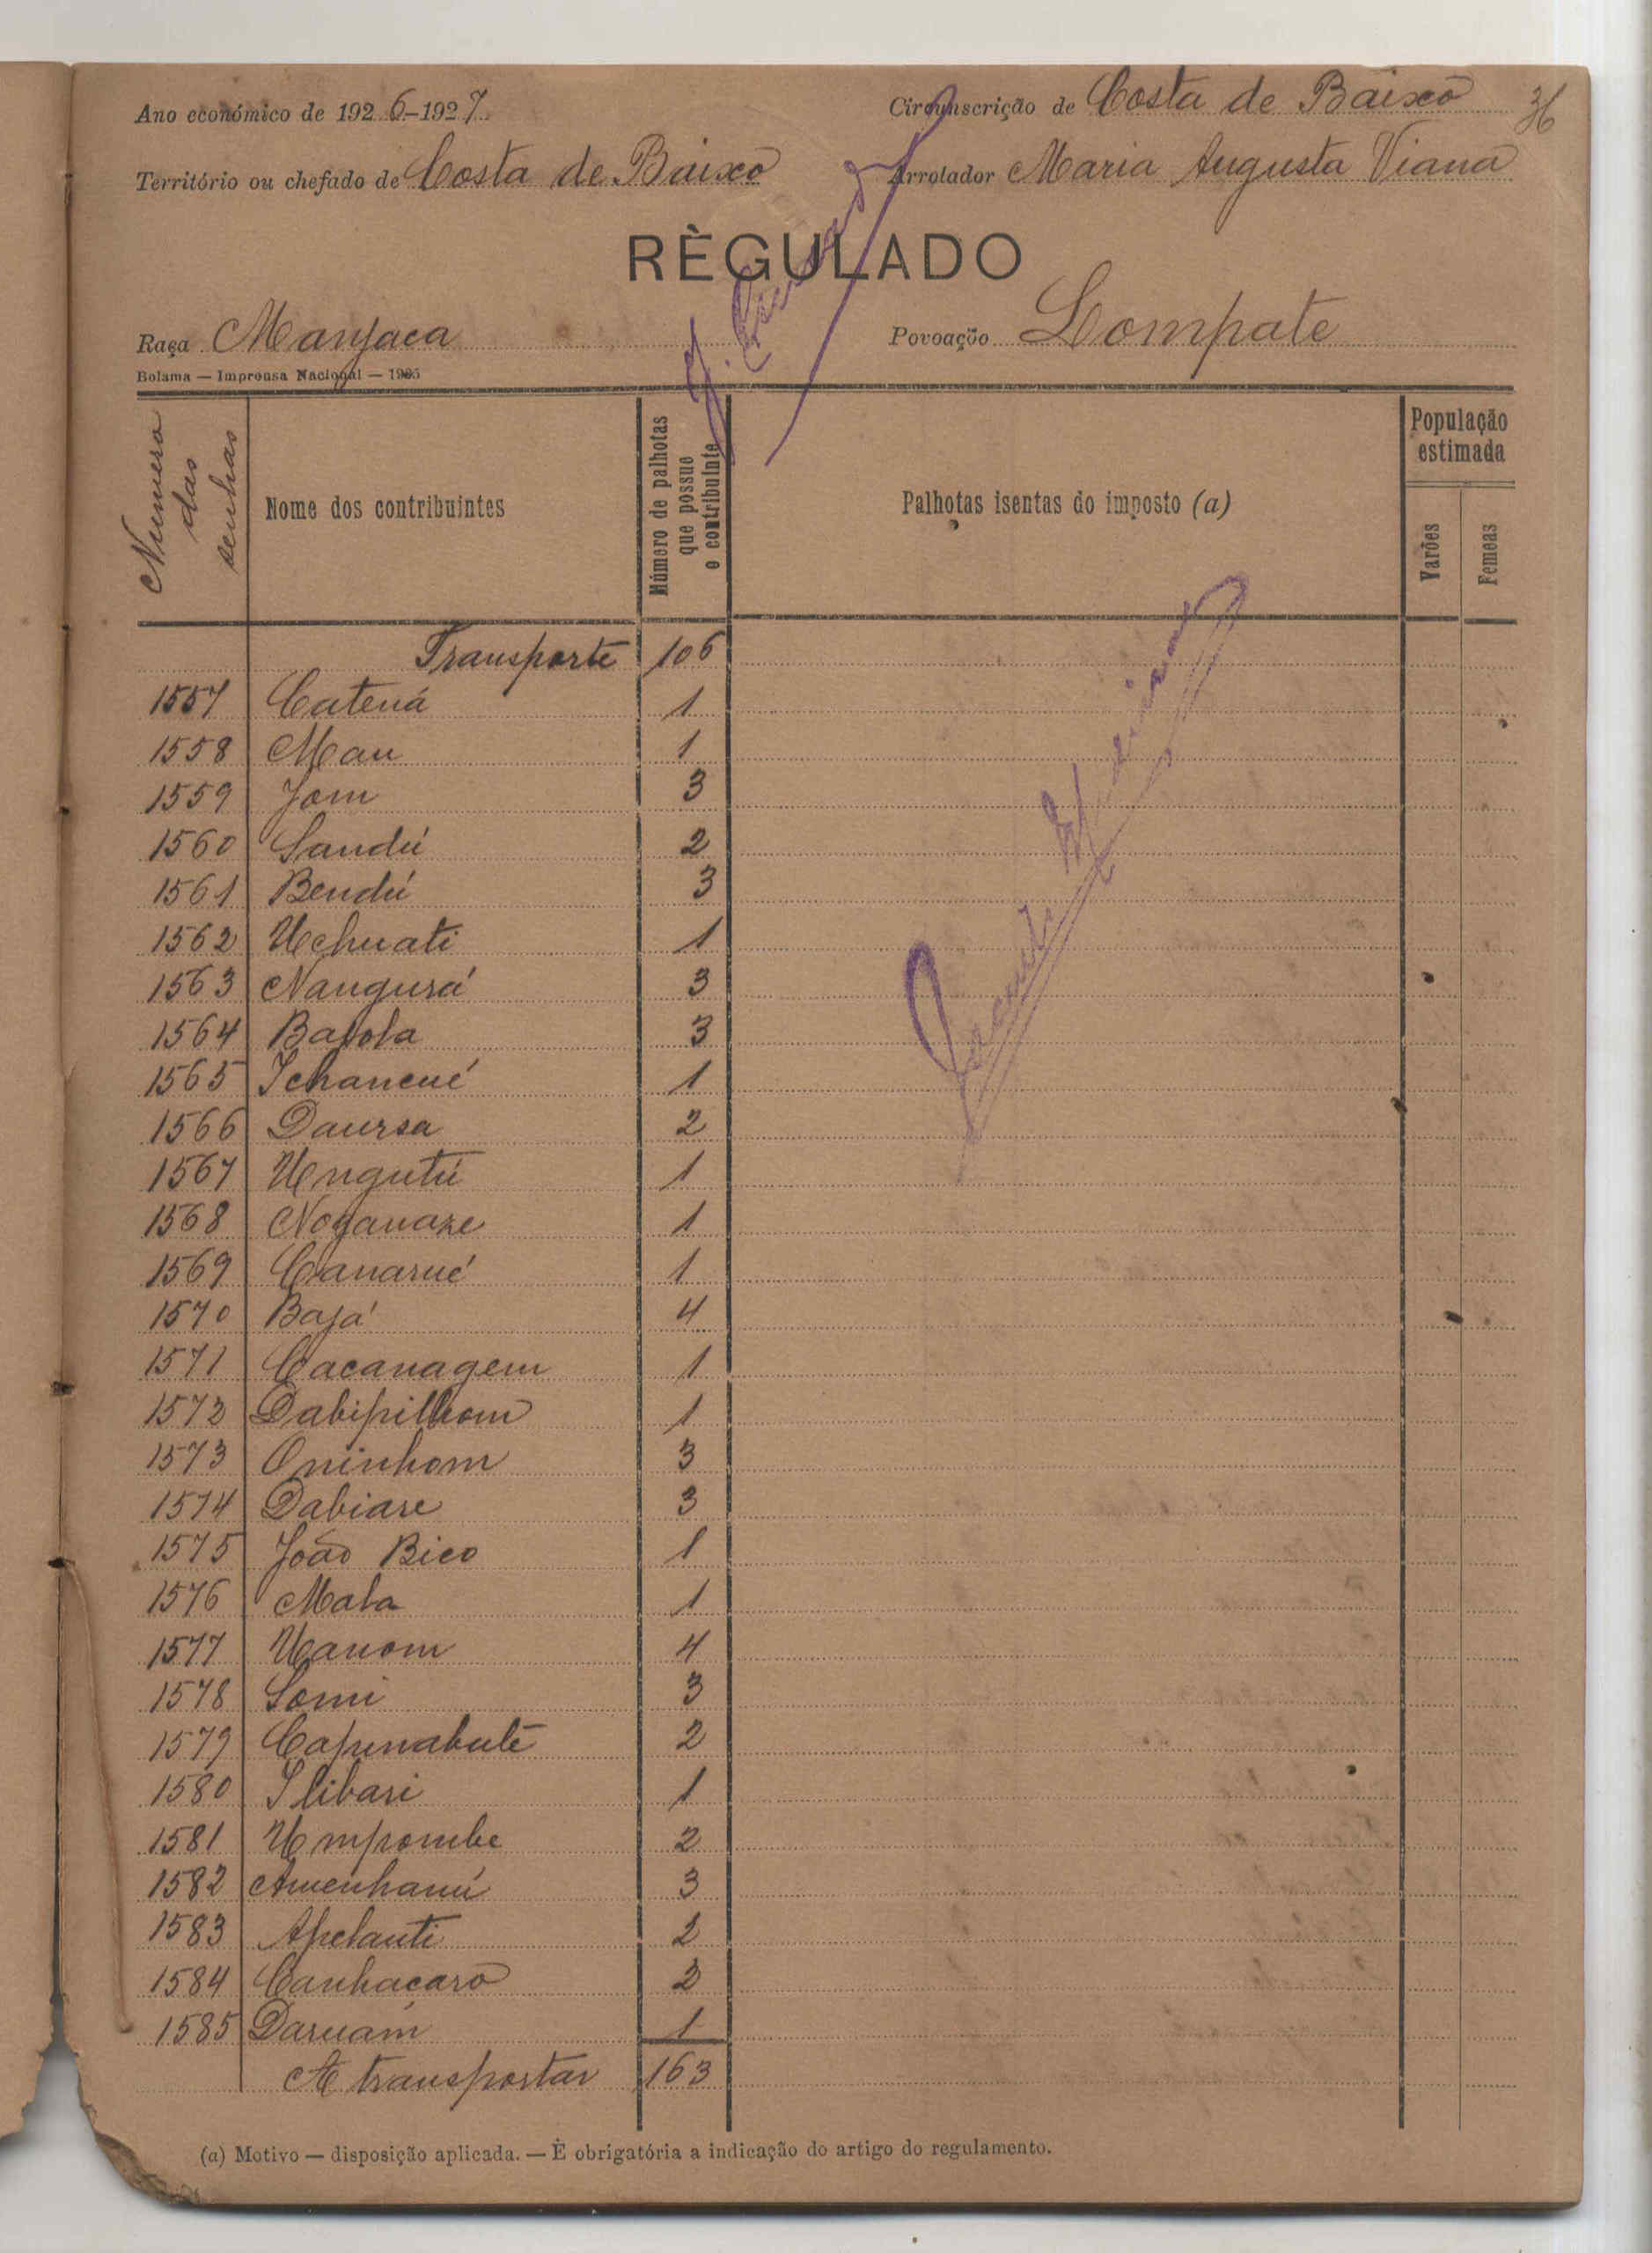 Ano económico de 1926-1927 Circunscrição de Costa de Baixo 36
Território ou chefado de Costa de Baixo Arrolador Maria Augusta Viana
RÈGULADO
Raça Manjaca Povoação Lompate
Bolama — Imprensa Nacional — 1925
Numero das senhas
Nome dos contribuintes
Número de palhotas que possue o contribuinte
Palhotas isentas do imposto (a)
População estimada
Varões
Femeas
Transporte 106
1557 Catená 1
1558 Mau 1
1559 Jom 3
1560 Sandú 2
1561 Bendú 3
1562 Uchuati 1
1563 Nangurá 3
1564 Batola 3
1565 Ichancué 1
1566 Daursa 2
1567 Ungutú 1
1568 Noganaze 1
1569 Canarué 1
1570 Bajá 4
1571 Cacanagem 1
1572 Dabipilhom 1
1573 Oninhom 3
1574 Dabiare 3
1575 João Bico 1
1576 Mala 1
1577 Uanom 4
1578 Somi 3
1579 Capunabuté 2
1580 Ilibari 1
1581 Umpombe 2
1582 Amenhamú 3
1583 Apelanti 2
1584 Canhacaro 2
1585 Daruám 1
A transportar 163
(a) Motivo — disposição aplicada. — È obrigatória a indicação do artigo do regulamento.